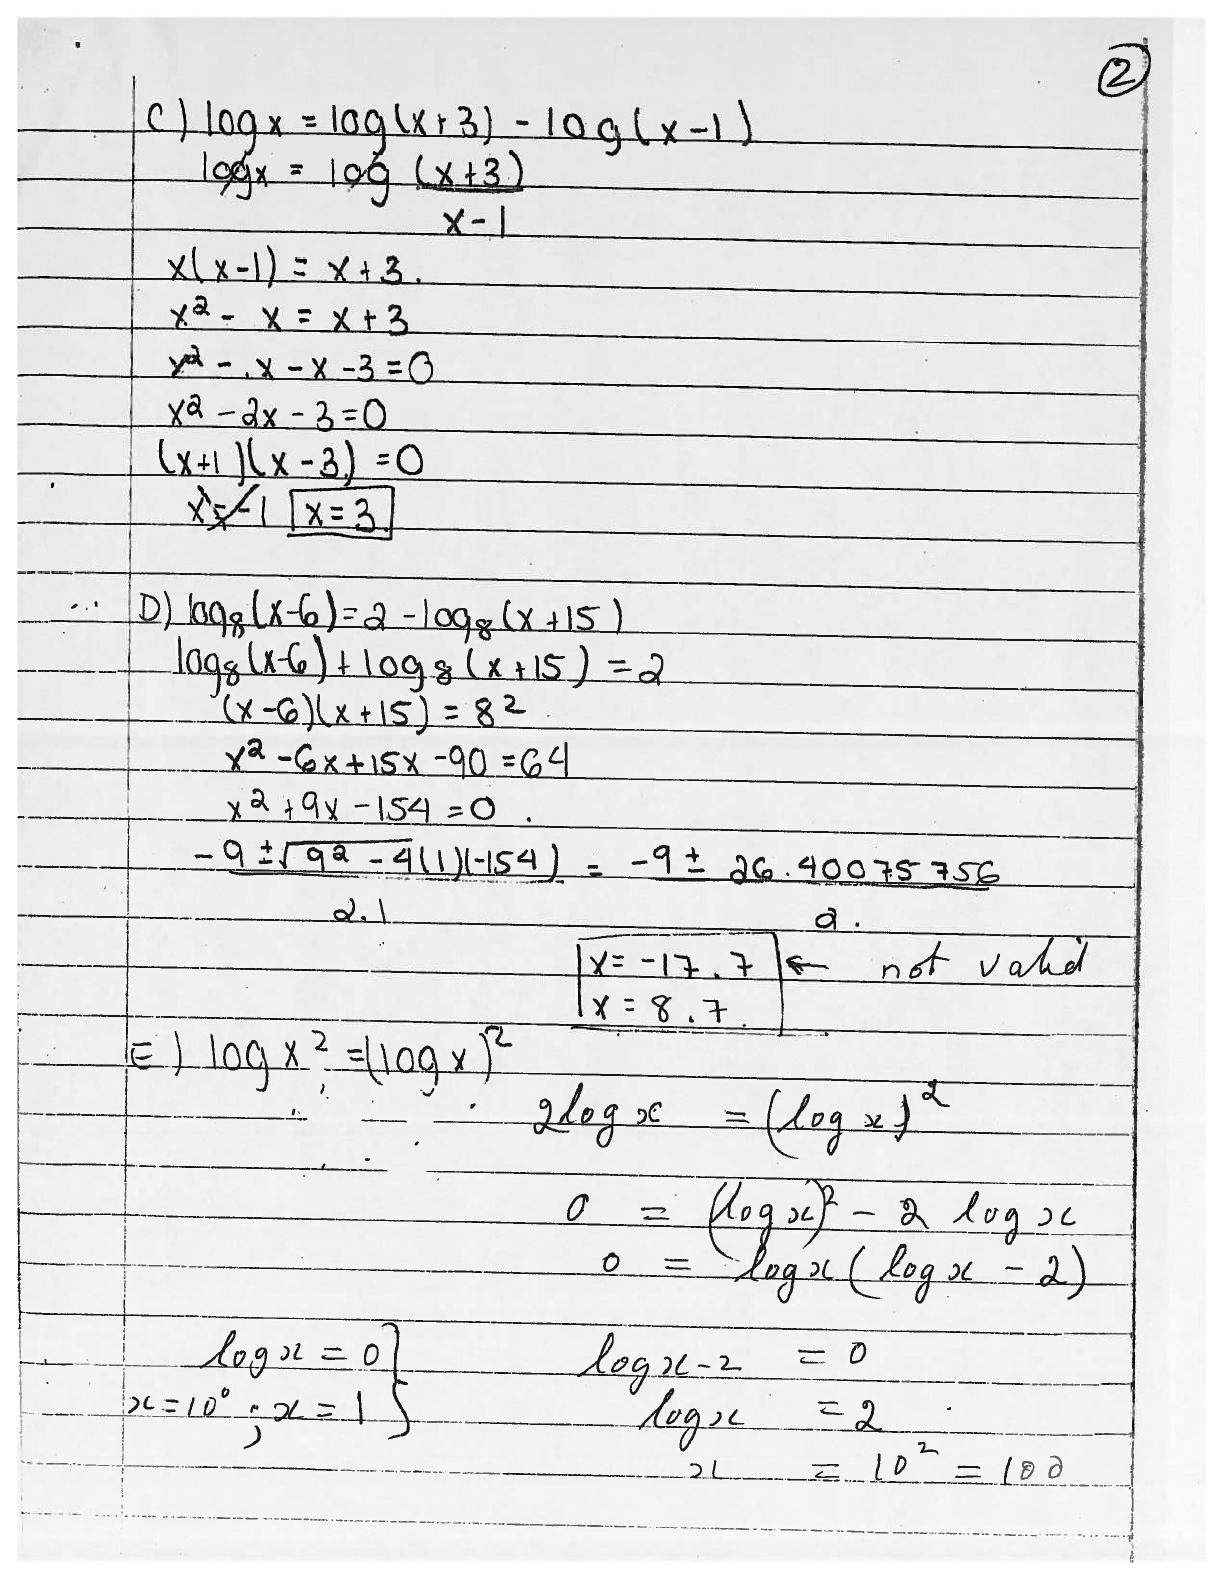 2
C) log x = log(x+3) - log(x-1)
log x = log (x+3)
x-1
x(x-1) = x+3.
x² - x = x+3
x² - x - x - 3 = 0
x² - 2x - 3 = 0
(x+1)(x-3) = 0
x = -1 x = 3
D) log₈(x-6) = 2 - log₈(x+15)
log₈(x-6) + log₈(x+15) = 2
(x-6)(x+15) = 8²
x² - 6x + 15x - 90 = 64
x² + 9x - 154 = 0.
-9 ± √9² - 4(1)(-154) = -9 ± 26.40075756
2.1 2.
x = -17.7 ← not valid
x = 8.7
E) log x² = (log x)²
2log x = (log x)²
0 = (log x)² - 2 log x
0 = log x (log x - 2)
log x = 0 } log x - 2 = 0
x = 10⁰ ; x = 1 log x = 2
x = 10² = 100